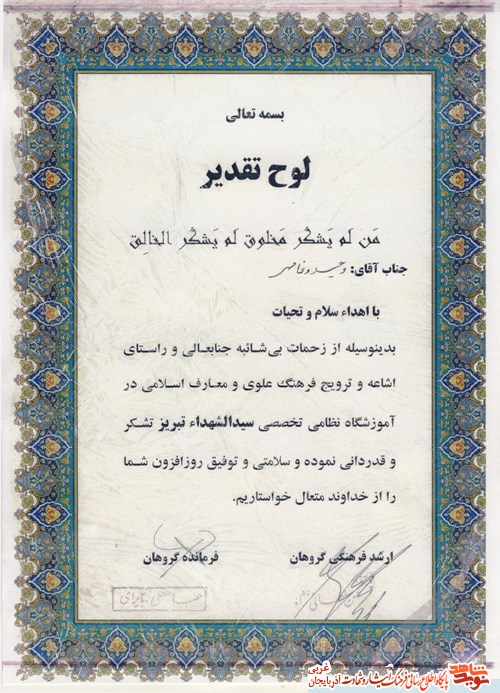 بسمه تعالی
لوح تقدیر
مَن لَم یَشکُر مَخلوق لَم یَشکُر الخالِق
جناب آقای: وحید
با اهداء سلام و تحیات
بدینوسیله از زحمات بی‌شائبه جنابعالی و راستای
اشاعه و ترویج فرهنگ علوی و معارف اسلامی در
آموزشگاه نظامی تخصصی سیدالشهداء تبریز تشکر
و قدردانی نموده و سلامتی و توفیق روزافزون شما
را از خداوند متعال خواستاریم.
ارشد فرهنگی گروهان
فرمانده گروهان
نوید شاهد
پایگاه اطلاع رسانی فرهنگ ایثار و شهادت آذربایجان غربی